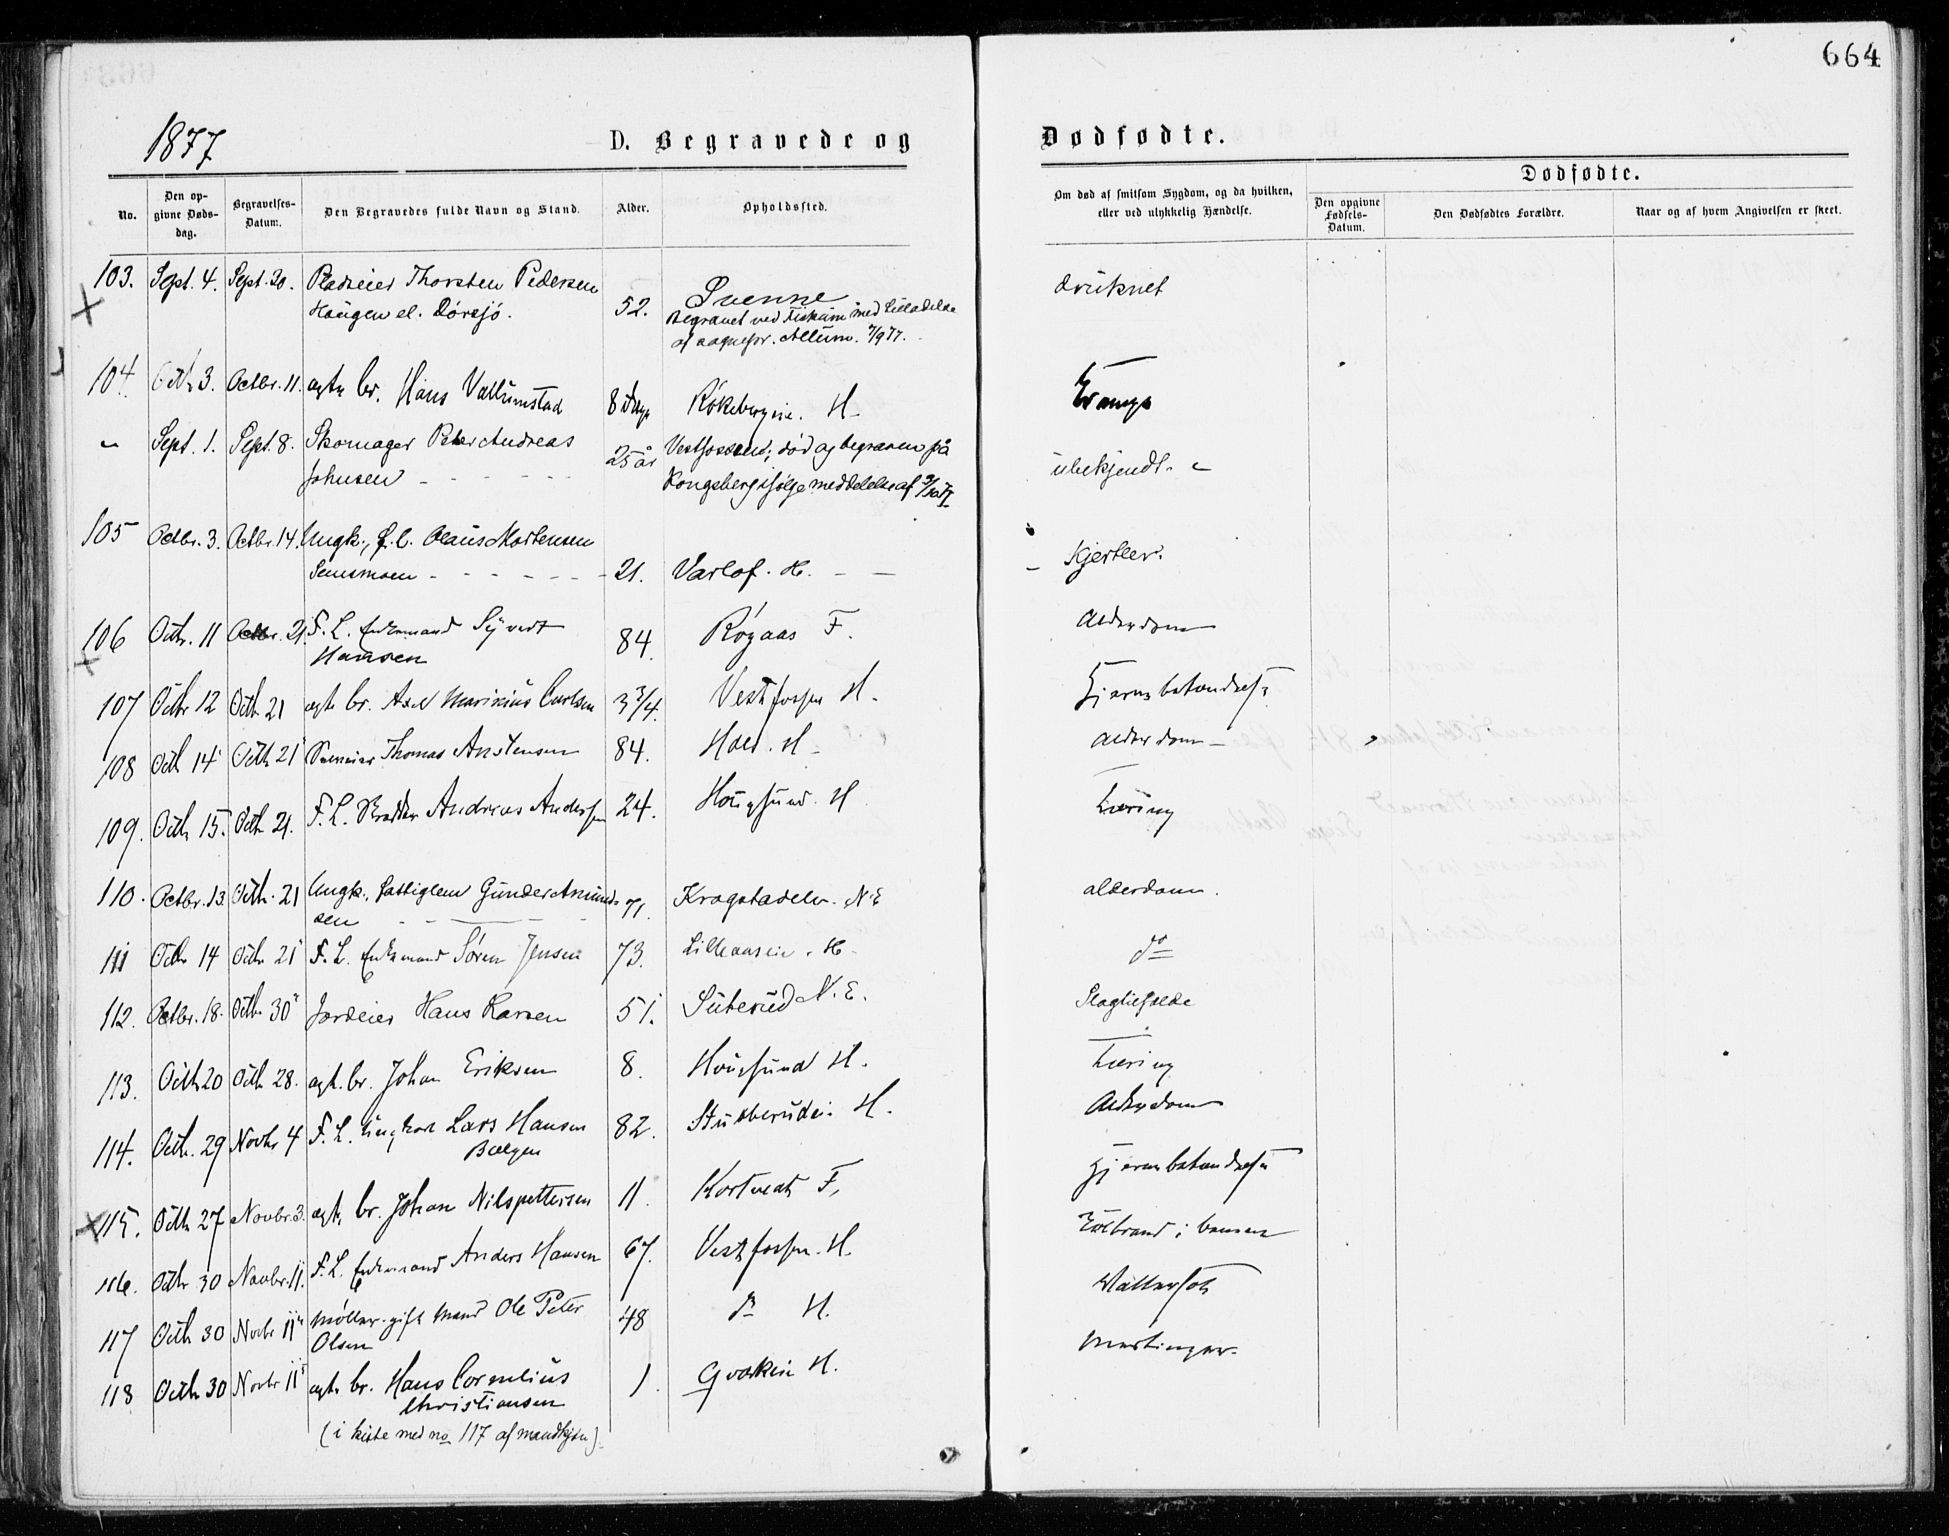 664
1877
D. Begravede og Dødfødte.
No.
Den opgivne Dødsdag.
Begravelses-Datum.
Den Begravedes fulde Navn og Stand.
Alder.
Opholdssted.
Om død af smitsom Sygdom, og da hvilken, eller ved ulykkelig Hændelse.
Dødfødte.
Den opgivne Fødsels-Datum.
Den Dødfødtes Forældre.
Naar og af hvem Angivelsen er skeet.
103. Sept. 4. Sept. 20. Pladseier Thorsten Pedersen
Haugen el. Dørsjö. 52. Svenne druknet
Begravet ved Fiskum med tilladelse
af sognepr. Allum. 7/9 77.
104. Octbr 3. Octbr. 11. ægte br. Hans Vallumstad 8 dage H. Krampe
" Sept. 1. Sept. 8. Skomager Peter Andreas
Johnsen 25 år Vestfossen; død og begraven på ubekjendt.
Kongsberg ifølge meddelelse af
105 Octbr. 3. Octbr. 14. Ungk., f.l. Olaus Mortensen
21. Varlof. H. Kjertler.
106 Octbr. 11 Octbr. 21. F. L. Enkemand Syvert
Hansen 84. Røgaas F. Alderdom
107 Octbr 12 Octb 21 ægte br. Axel Marinius Carlsen 3 3/4. Vestfossen H. Hjernebetændelse
108 Octb 14 Octb 21 Thomas Anstensen 84. Hoes. H. Alderdom
109. Octb 15. Octb 21. F. L. Andreas Anderssen 24. Hougsund. H Tæring
110. Octbr. 13 Octb. 21 Ungk., Fattiglem Gunder Amund-
sen 71. Kragstadelv. N.E alderdom.
111 Octbr 14 Octbr 21 F. L. Enkemand Søren Jensen 73. Lilleaasen. H. do
112. Octbr. 18. Octbr. 30 Jordeier Hans Larsen 51. Suterud N. E. Slagtilfælde
113. Octb 20 Octb 28. ægt. br. Johan Eriksen 8. Hougsund H. Tæring
114. Octbr. 29 Novbr 4 F. L. Ungkarl Lars Hansen
82. Stubberudei. H. Alderdom
115. Octb 27 Novbr. 3. ægte br. Johan Nilspettersen 11. Kortvedt F. Hjernebetændelse
116. Octbr 30 Novbr. 11. F. L. Enkemand Anders Hansen 67. Vestfossen. H. Koldbrand i benene
117 Octb 30 Novbr 11 Møller, gift mand Ole Peter
Olsen 48 do H. Vattersot
118 Octb 30 Novbr 11 ægte br. Hans Cornelius
Christiansen 1. H. Mæslinger.
(i kiste med no 117 af mandkjøn).